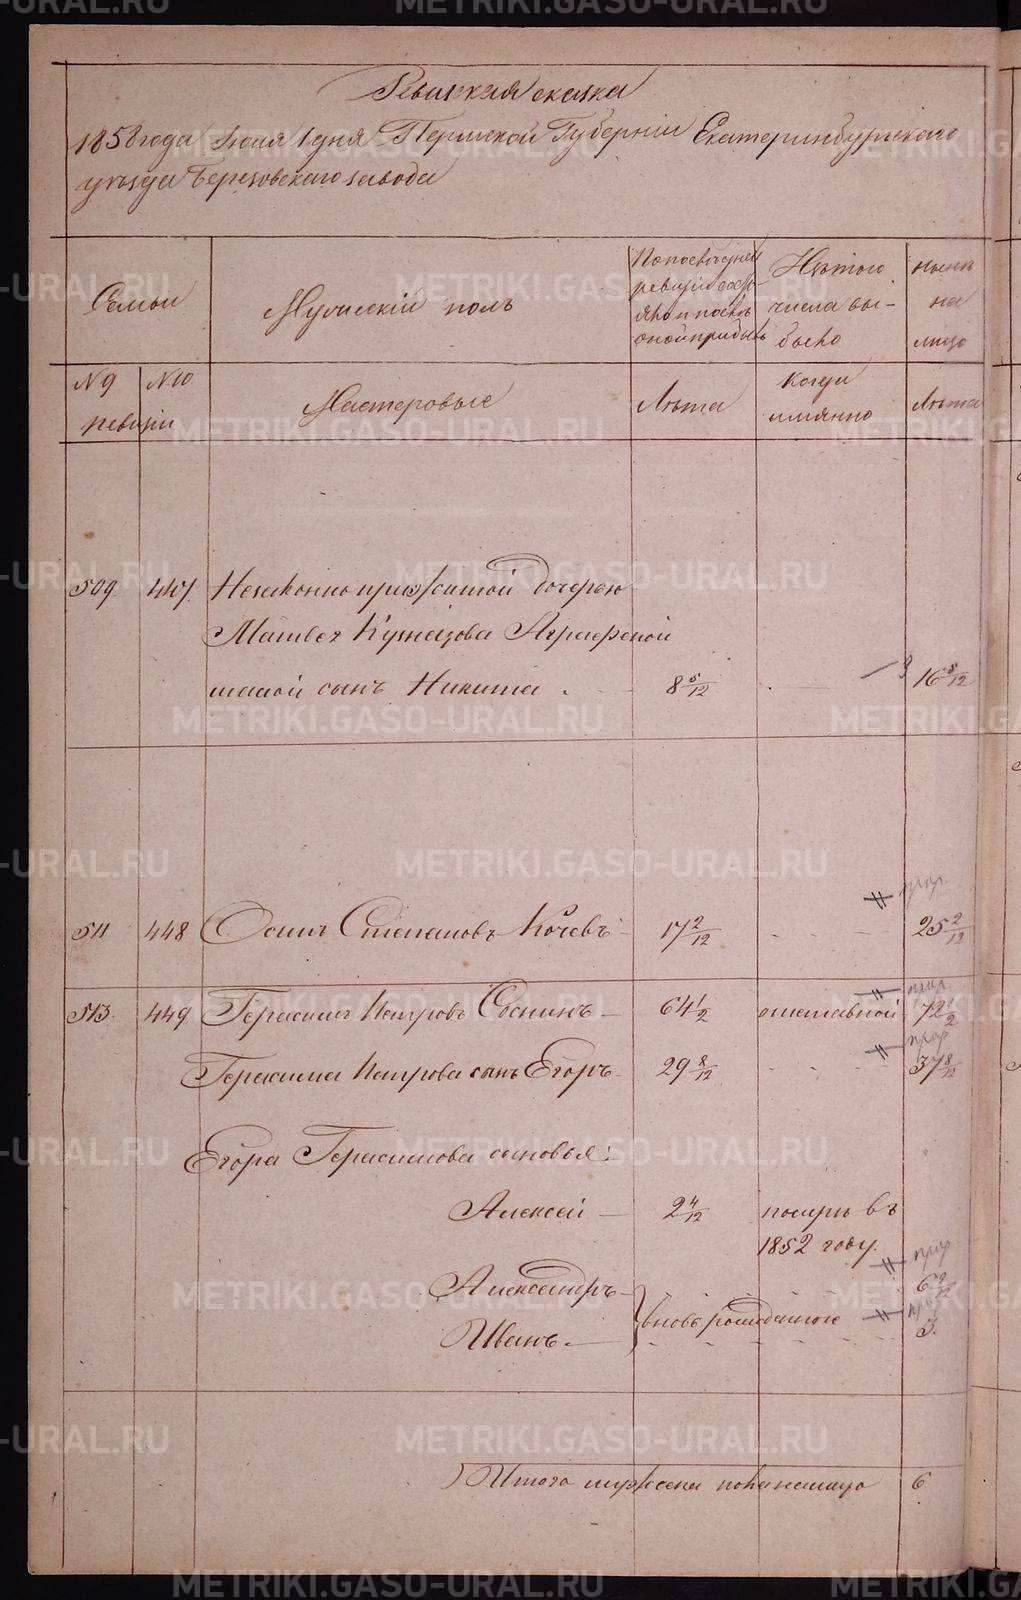 Ревизская сказка
1858 года Июля 1 дня Пермской Губернiи Екатеринбургского
уезда Березовского завода
Семьи
Мужескiй полъ
По последней
ревизiи состо-
яло и после
оной прибыло
Изъ того
числа вы-
было
ныне
на
лицо
N 9 N 10
ревизiи
Мастеровые
Лета
Когда
имянно
Лета
509. 447. Незаконно прижитой дочерью
Матвея Кузнецова Аграфеной
сынъ Никита 8 5/12 16 5/12
511 448 Осипъ Степановъ Кочевъ 17 2/12 25 2/12
513. 449 Герасимъ Петровъ Соснинъ 64 1/2 отставной 72 1/2
Герасима Петрова сынъ Егоръ 29 8/12 37 8/12
Егора Герасимова сыновья:
Алексей 2 4/12 помре въ
1852 году.
Александръ 6 2/12
вновь рожденные
Иванъ 3.
Итого мужеска пола налицо 6
METRIKI.GASO-URAL.RU